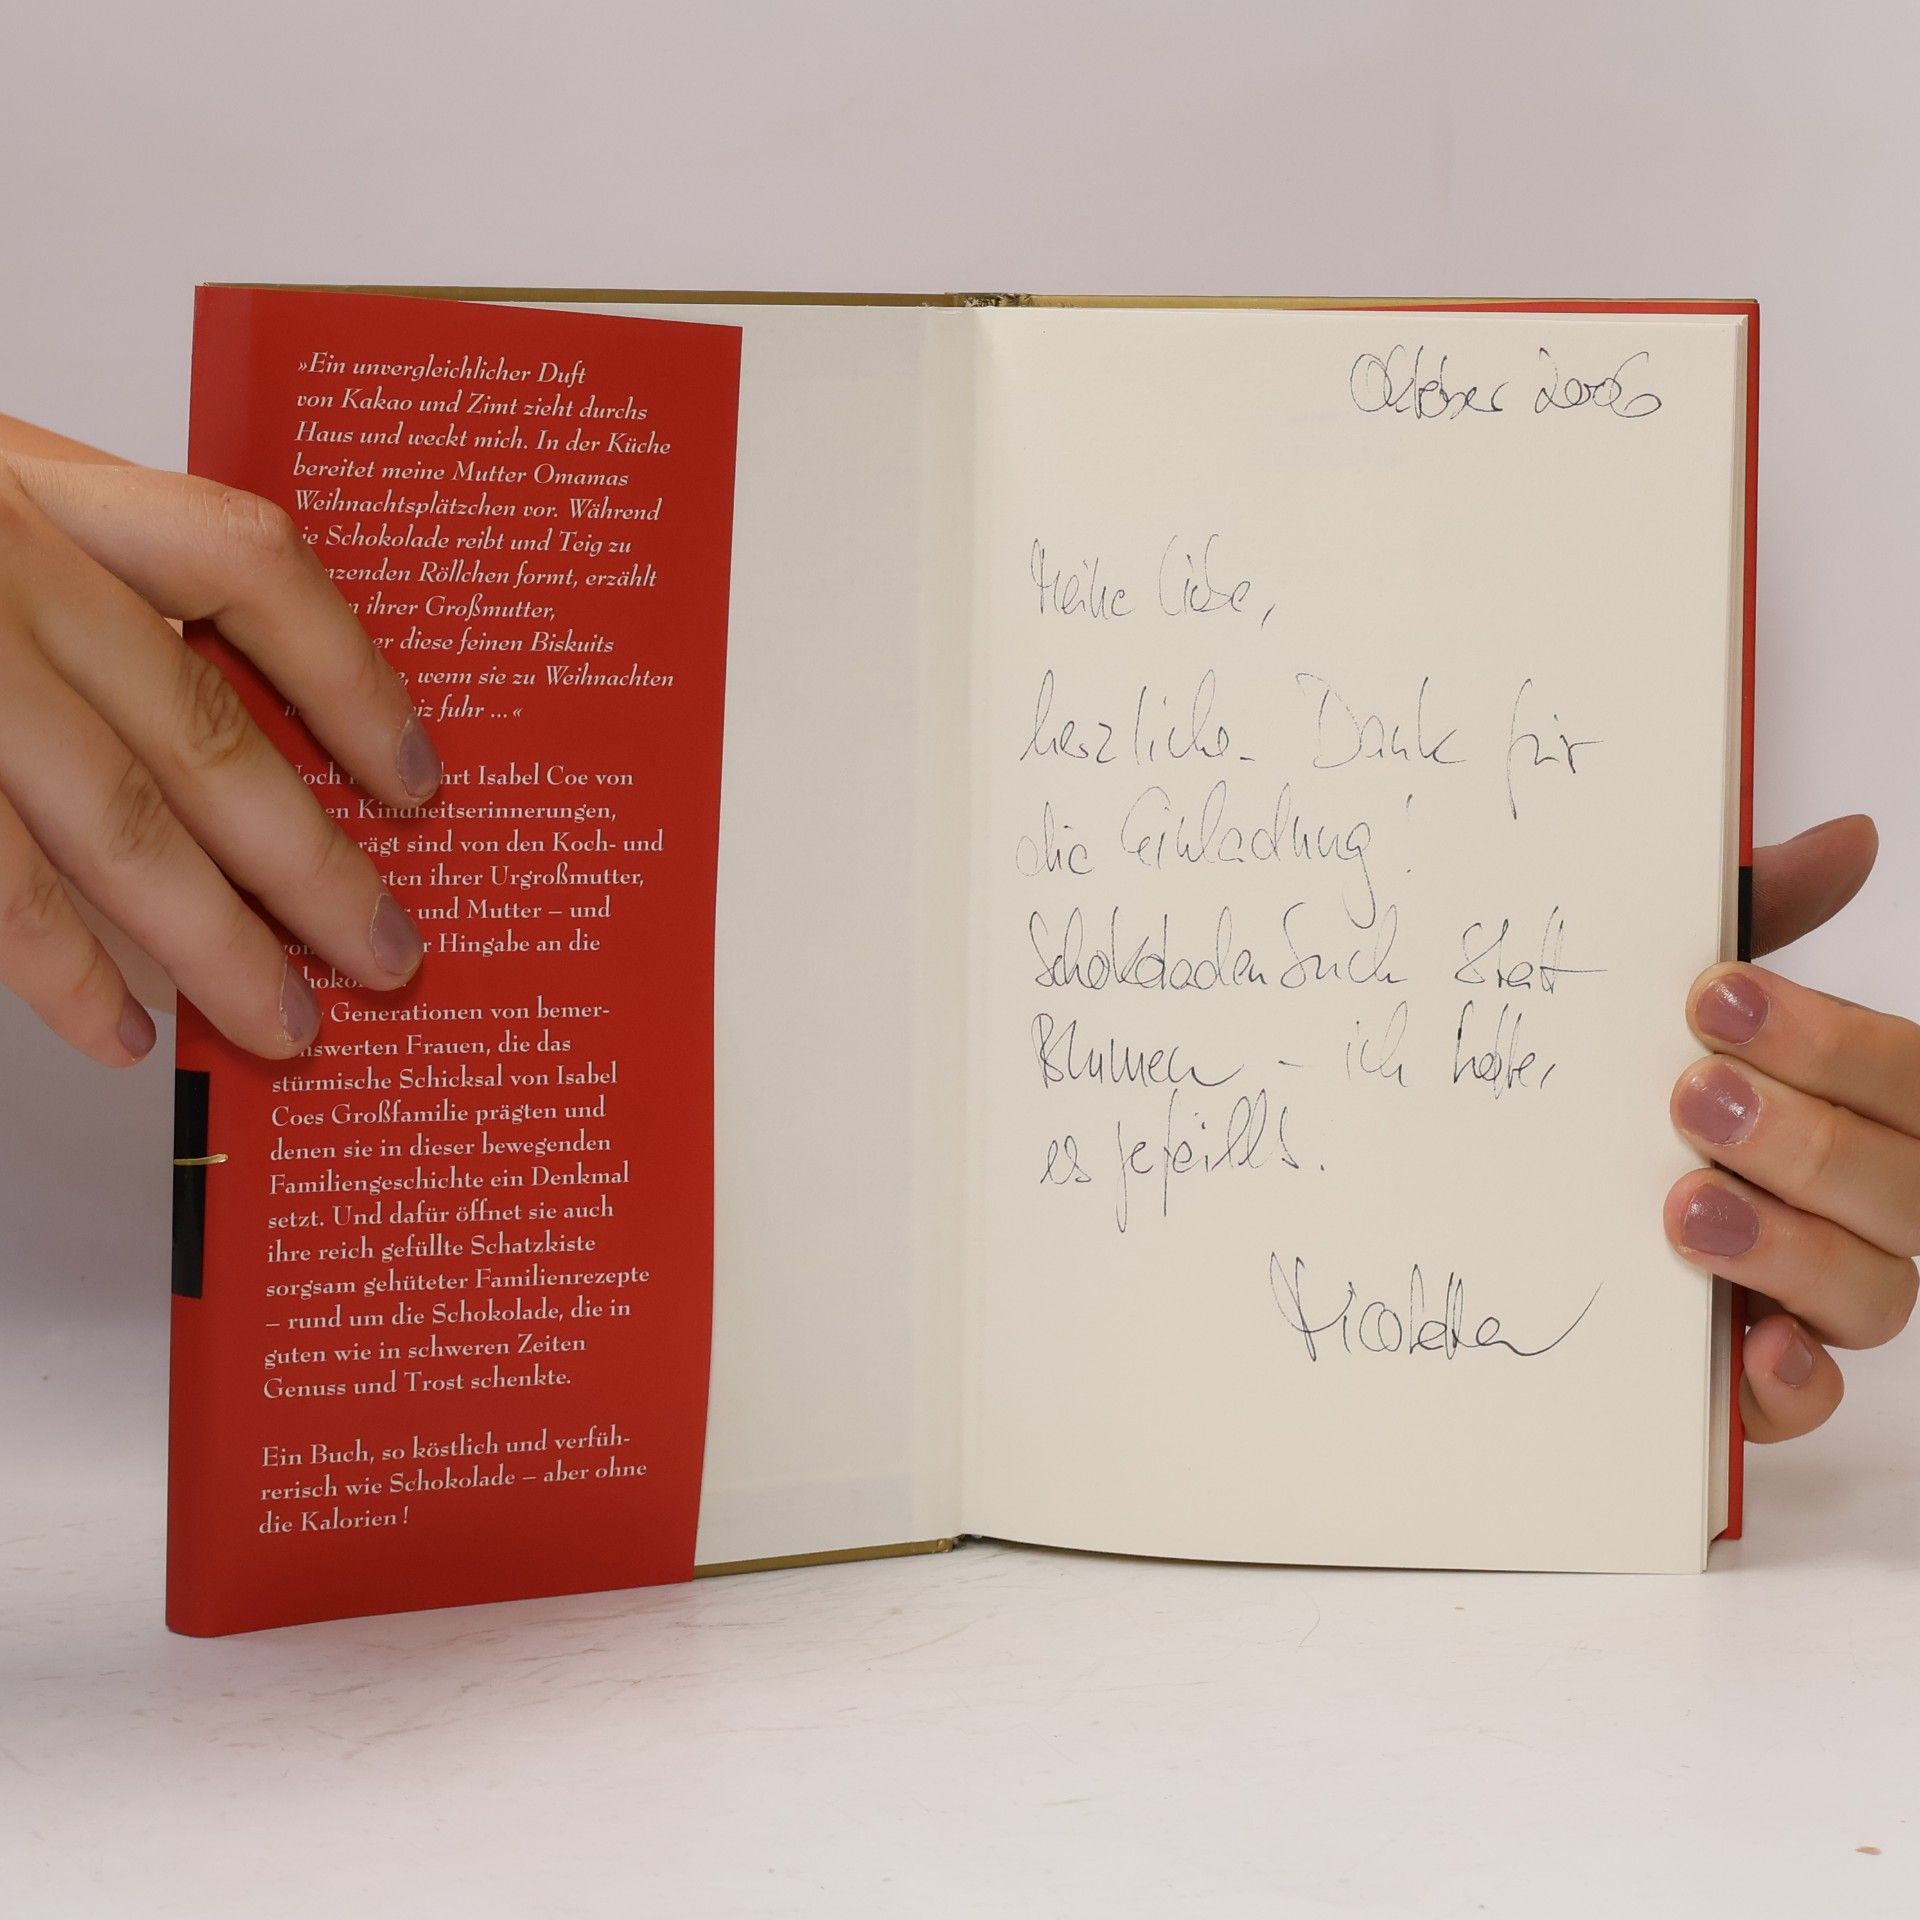 »Ein unvergleichlicher Duft
von Kakao und Zimt zieht durchs
Haus und weckt mich. In der Küche
bereitet meine Mutter Omamas
Weihnachtsplätzchen vor. Während
Schokolade reibt und Teig zu
Röllchen formt, erzählt
ihrer Großmutter,
diese feinen Biskuits
wenn sie zu Weihnachten
fuhr ...«
Isabel Coe von
Kindheitserinnerungen,
sind von den Koch- und
ihrer Urgroßmutter,
und Mutter – und
Hingabe an die
Generationen von bemer-
swerten Frauen, die das
stürmische Schicksal von Isabel
Coes Großfamilie prägten und
denen sie in dieser bewegenden
Familiengeschichte ein Denkmal
setzt. Und dafür öffnet sie auch
ihre reich gefüllte Schatzkiste
sorgsam gehüteter Familienrezepte
– rund um die Schokolade, die in
guten wie in schweren Zeiten
Genuss und Trost schenkte.
Ein Buch, so köstlich und verfüh-
rerisch wie Schokolade – aber ohne
die Kalorien !
Oktober 2006
Meine Liebe,
herzlichen Dank für
die Einladung!
Schokoladenbuch statt
Blumen – ich hoffe,
es gefällt.
Nicoletta